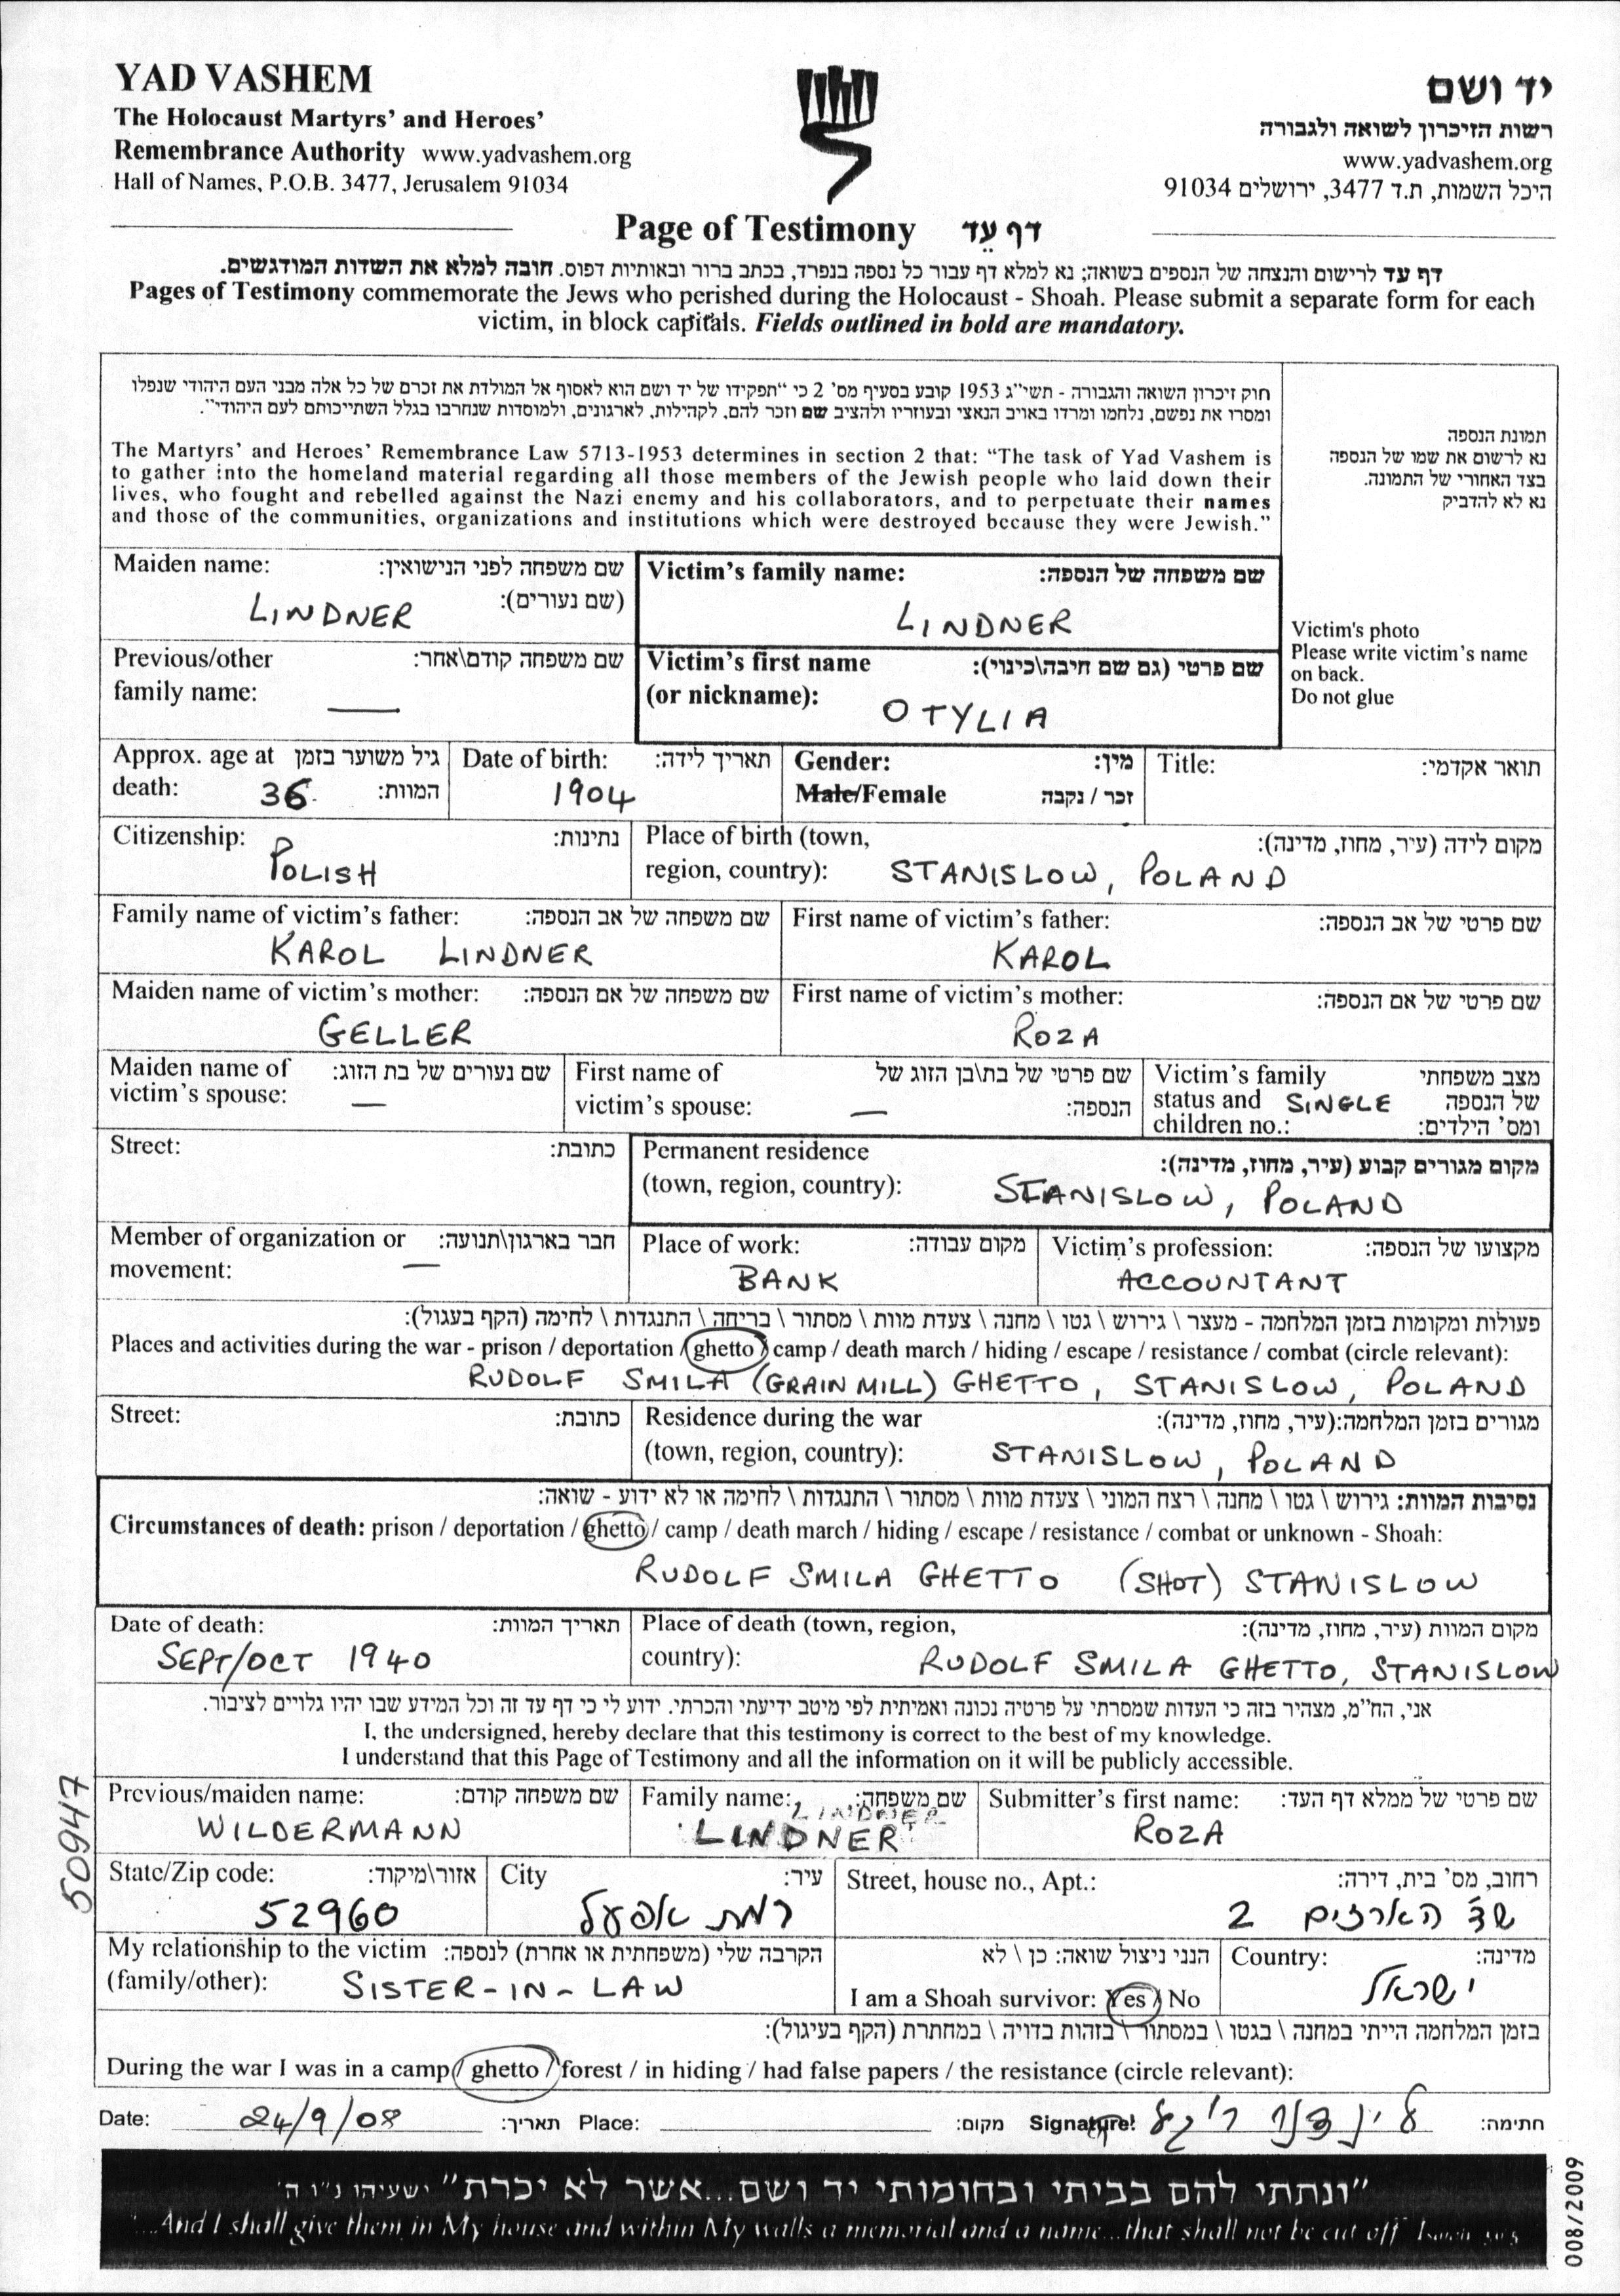 YAD VASHEM
The Holocaust Martyrs' and Heroes'
Remembrance Authority www.yadvashem.org
Hall of Names, P.O.B. 3477, Jerusalem 91034
יד ושם
רשות הזיכרון לשואה ולגבורה
www.yadvashem.org
היכל השמות, ת.ד 3477, ירושלים 91034
Page of Testimony דף עֵד
דף עד לרישום והנצחה של הנספים בשואה; נא למלא דף עבור כל נספה בנפרד, בכתב ברור ובאותיות דפוס. חובה למלא את השדות המודגשים.
Pages of Testimony commemorate the Jews who perished during the Holocaust - Shoah. Please submit a separate form for each
victim, in block capitals. Fields outlined in bold are mandatory.
חוק זיכרון השואה והגבורה - תשי"ג 1953 קובע בסעיף מס' 2 כי "תפקידו של יד ושם הוא לאסוף אל המולדת את זכרם של כל אלה מבני העם היהודי שנפלו
ומסרו את נפשם, נלחמו ומרדו באויב הנאצי ובעוזריו ולהציב שם וזכר להם, לקהילות, לארגונים, ולמוסדות שנחרבו בגלל השתייכותם לעם היהודי".
The Martyrs' and Heroes' Remembrance Law 5713-1953 determines in section 2 that: "The task of Yad Vashem is
to gather into the homeland material regarding all those members of the Jewish people who laid down their
lives, who fought and rebelled against the Nazi enemy and his collaborators, and to perpetuate their names
and those of the communities, organizations and institutions which were destroyed because they were Jewish."
תמונת הנספה
נא לרשום את שמו של הנספה
בצד האחורי של התמונה.
נא לא להדביק
Victim's photo
Please write victim's name
on back.
Do not glue
Maiden name: שם משפחה לפני הנישואין:
(שם נעורים):
LINDNER
Victim's family name: שם משפחה של הנספה:
LINDNER
Previous/other שם משפחה קודם\אחר:
family name: —
Victim's first name שם פרטי (גם שם חיבה\כינוי):
(or nickname):
OTYLIA
Approx. age at גיל משוער בזמן
death: 36 המוות:
Date of birth: תאריך לידה:
1904
Gender: מין:
Male/Female זכר / נקבה
Title: תואר אקדמי:
Citizenship: נתינות:
POLISH
Place of birth (town, מקום לידה (עיר, מחוז, מדינה):
region, country): STANISLOW, POLAND
Family name of victim's father: שם משפחה של אב הנספה:
KAROL LINDNER
First name of victim's father: שם פרטי של אב הנספה:
KAROL
Maiden name of victim's mother: שם משפחה של אם הנספה:
GELLER
First name of victim's mother: שם פרטי של אם הנספה:
ROZA
Maiden name of שם נעורים של בת הזוג:
victim's spouse: —
First name of שם פרטי של בת\בן הזוג של
victim's spouse: — הנספה:
Victim's family מצב משפחתי
status and SINGLE של הנספה
children no.: ומס' הילדים:
Street: כתובת:
Permanent residence מקום מגורים קבוע (עיר, מחוז, מדינה):
(town, region, country): STANISLOW, POLAND
Member of organization or חבר בארגון\תנועה:
movement: —
Place of work: מקום עבודה:
BANK
Victim's profession: מקצועו של הנספה:
ACCOUNTANT
פעולות ומקומות בזמן המלחמה - מעצר \ גירוש \ גטו \ מחנה \ צעדת מוות \ מסתור \ בריחה \ התנגדות \ לחימה (הקף בעגול):
Places and activities during the war - prison / deportation / ghetto / camp / death march / hiding / escape / resistance / combat (circle relevant):
RUDOLF SMILA (GRAIN MILL) GHETTO, STANISLOW, POLAND
Street: כתובת:
Residence during the war מגורים בזמן המלחמה:(עיר, מחוז, מדינה):
(town, region, country): STANISLOW, POLAND
נסיבות המוות: גירוש \ גטו \ מחנה \ רצח המוני \ צעדת מוות \ מסתור \ התנגדות \ לחימה או לא ידוע - שואה:
Circumstances of death: prison / deportation / ghetto / camp / death march / hiding / escape / resistance / combat or unknown - Shoah:
RUDOLF SMILA GHETTO (SHOT) STANISLOW
Date of death: תאריך המוות:
SEPT/OCT 1940
Place of death (town, region, מקום המוות (עיר, מחוז, מדינה):
country): RUDOLF SMILA GHETTO, STANISLOW
אני, הח"מ, מצהיר בזה כי העדות שמסרתי על פרטיה נכונה ואמיתית לפי מיטב ידיעתי והכרתי. ידוע לי כי דף עד זה וכל המידע שבו יהיו גלויים לציבור.
I, the undersigned, hereby declare that this testimony is correct to the best of my knowledge.
I understand that this Page of Testimony and all the information on it will be publicly accessible.
Previous/maiden name: שם משפחה קודם:
WILDERMANN
Family name: שם משפחה:
LINDNER
LINDNER
Submitter's first name: שם פרטי של ממלא דף העד:
ROZA
State/Zip code: אזור\מיקוד:
52960
City עיר:
רמת אפעל
Street, house no., Apt.: רחוב, מס' בית, דירה:
שד' הארזים 2
My relationship to the victim הקרבה שלי (משפחתית או אחרת) לנספה:
(family/other): SISTER-IN-LAW
הנני ניצול שואה: כן \ לא
I am a Shoah survivor: Yes / No
Country: מדינה:
ישראל
בזמן המלחמה הייתי במחנה \ בגטו \ במסתור \ בזהות בדויה \ במחתרת (הקף בעיגול):
During the war I was in a camp / ghetto / forest / in hiding / had false papers / the resistance (circle relevant):
Date: 24/9/08 תאריך: Place: מקום: Signature: לינדנר רוזה חתימה:
"ונתתי להם בביתי ובחומותי יד ושם...אשר לא יכרת" ישעיהו נ"ו ה'
"...And I shall give them in My house and within My walls a memorial and a name...that shall not be cut off" Isaiah 56:5
50947
008/2009